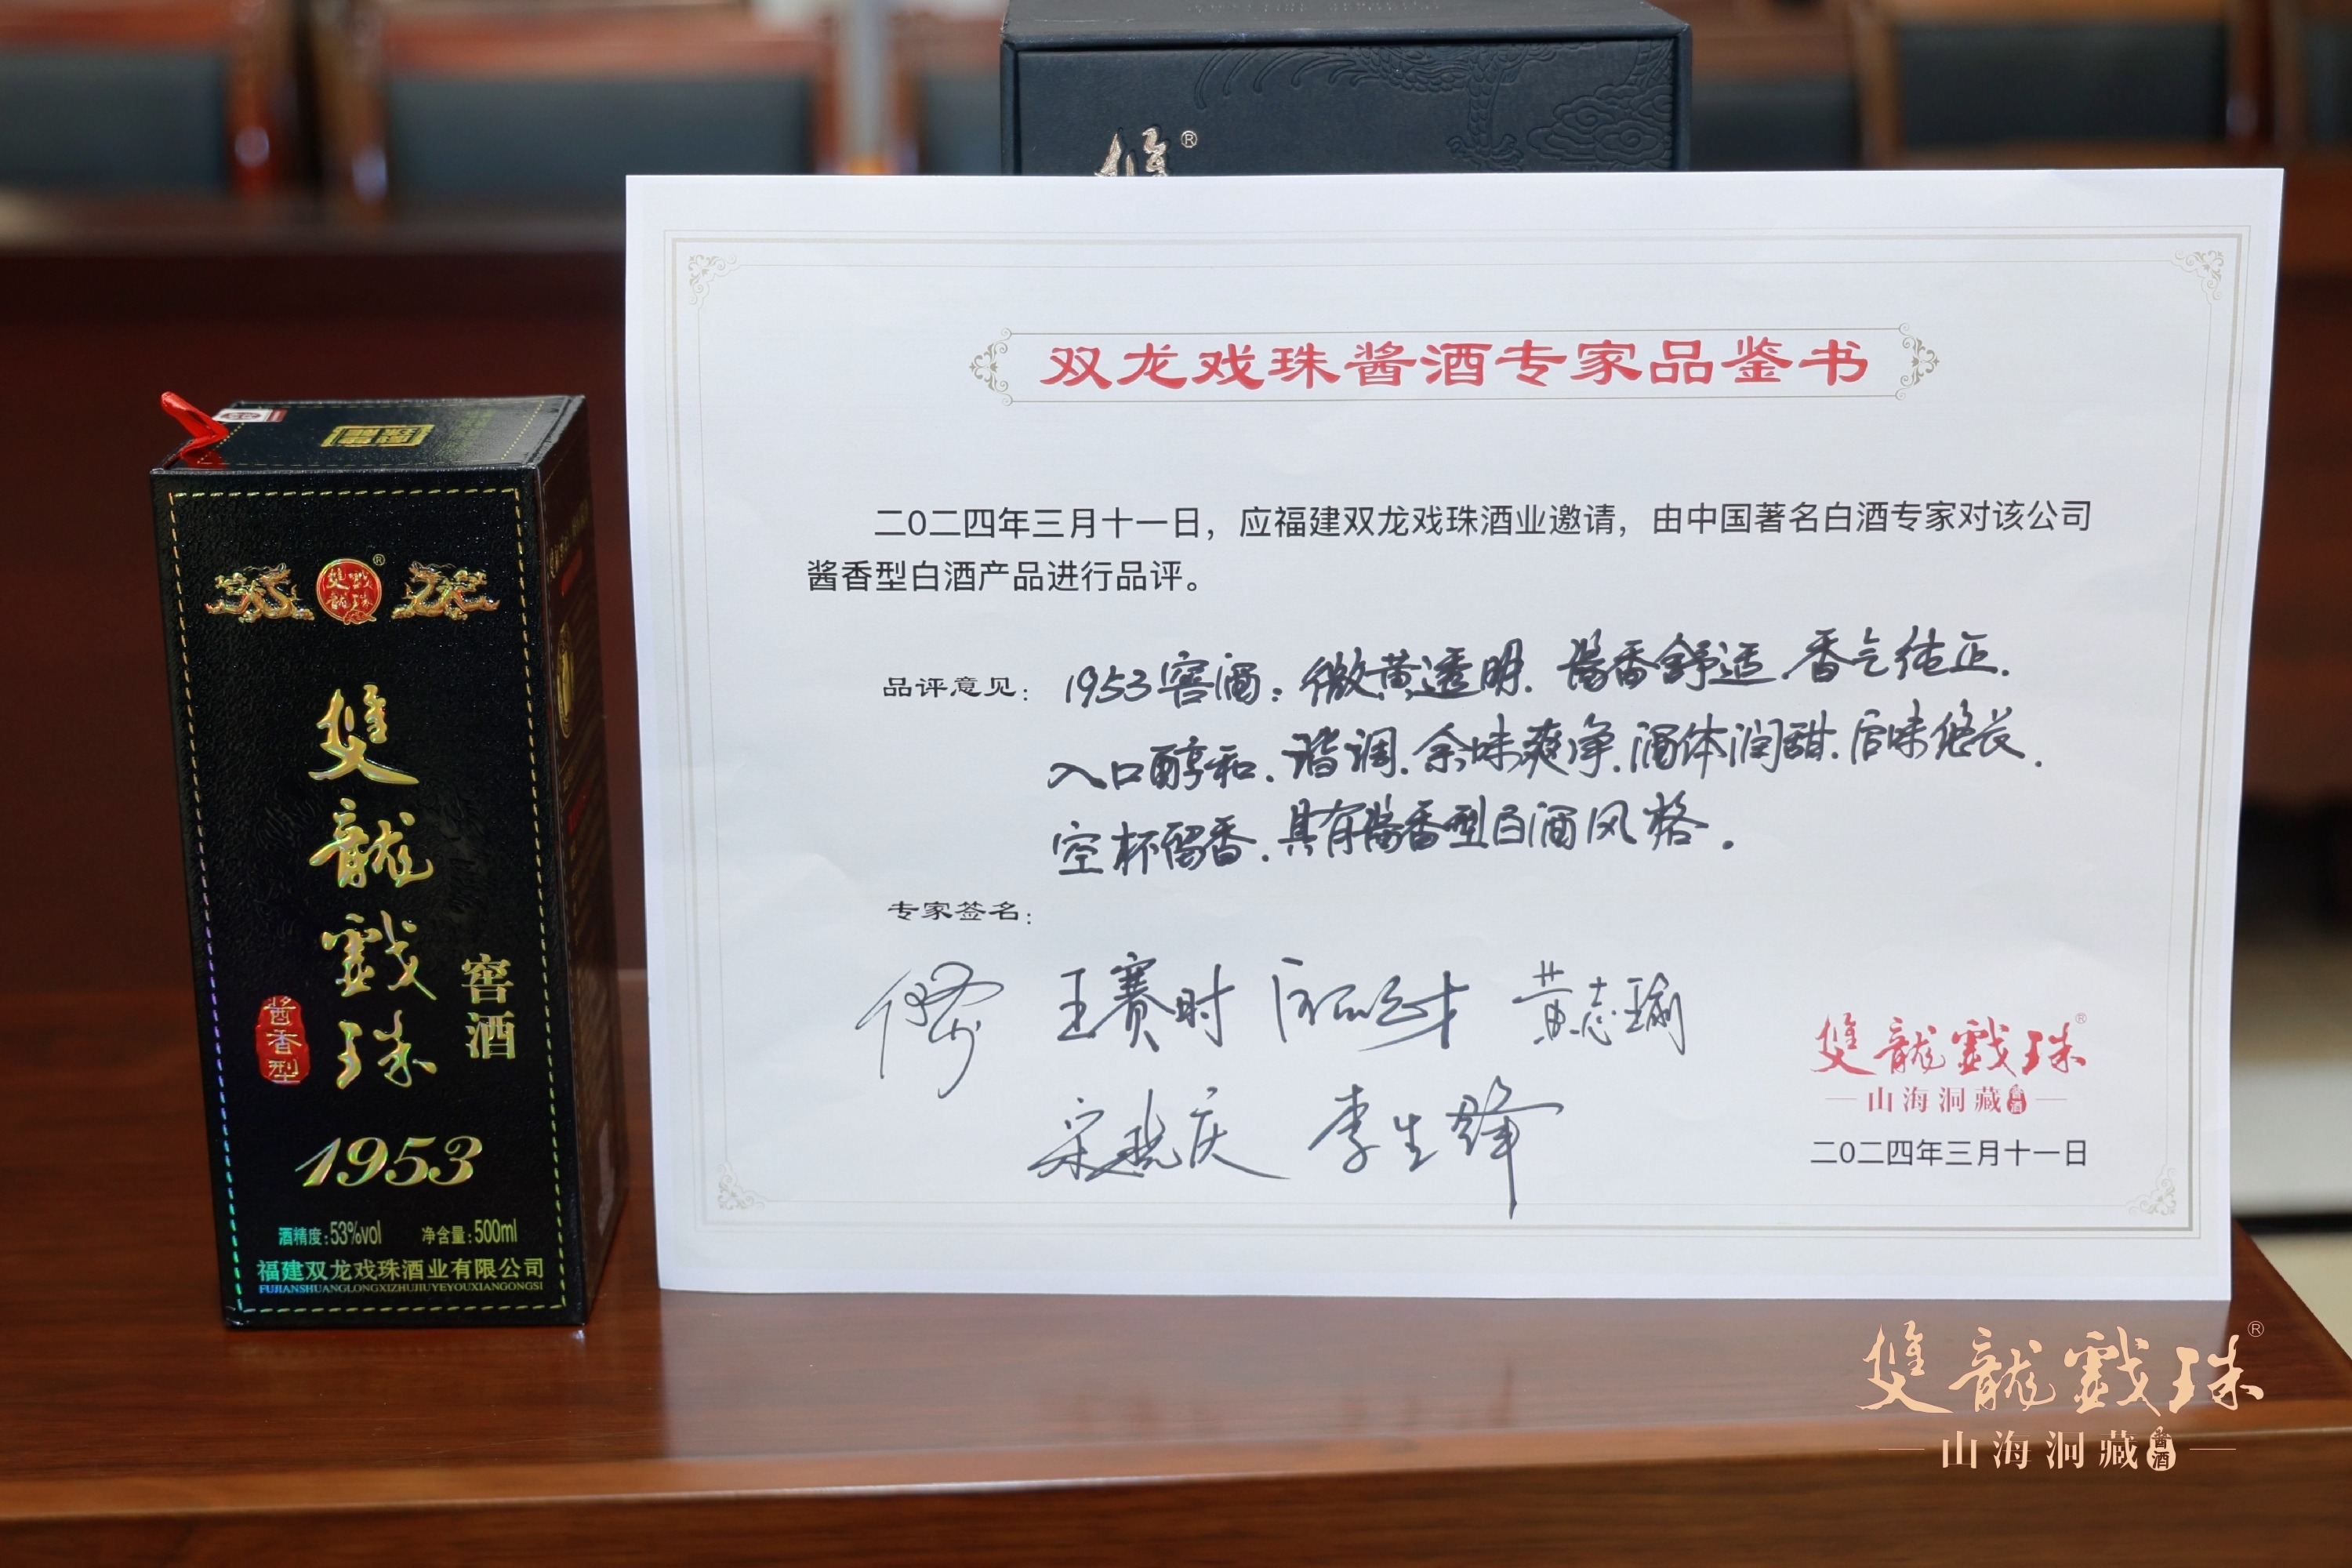 雙®
双龙戏珠酱酒专家品鉴书
二〇二四年三月十一日，应福建双龙戏珠酒业邀请，由中国著名白酒专家对该公司
酱香型白酒产品进行品评。
品评意见： 1953窖酒：微黄透明.酱香舒适.香气纯正.
入口醇和.谐调.余味爽净.酒体润甜.后味悠长.
空杯留香.具有酱香型白酒风格.
专家签名：
王赛时 黄志瑜
李生
雙龍戲珠®
山海洞藏 酱酒
二〇二四年三月十一日
雙龍戲珠®
雙龍戲珠
窖酒
酱香型
1953
酒精度:53%vol 净含量:500ml
福建双龙戏珠酒业有限公司
FUJIANSHUANGLONGXIZHUJIUYEYOUXIANGONGSI
雙龍戲珠®
山海洞藏 酱酒